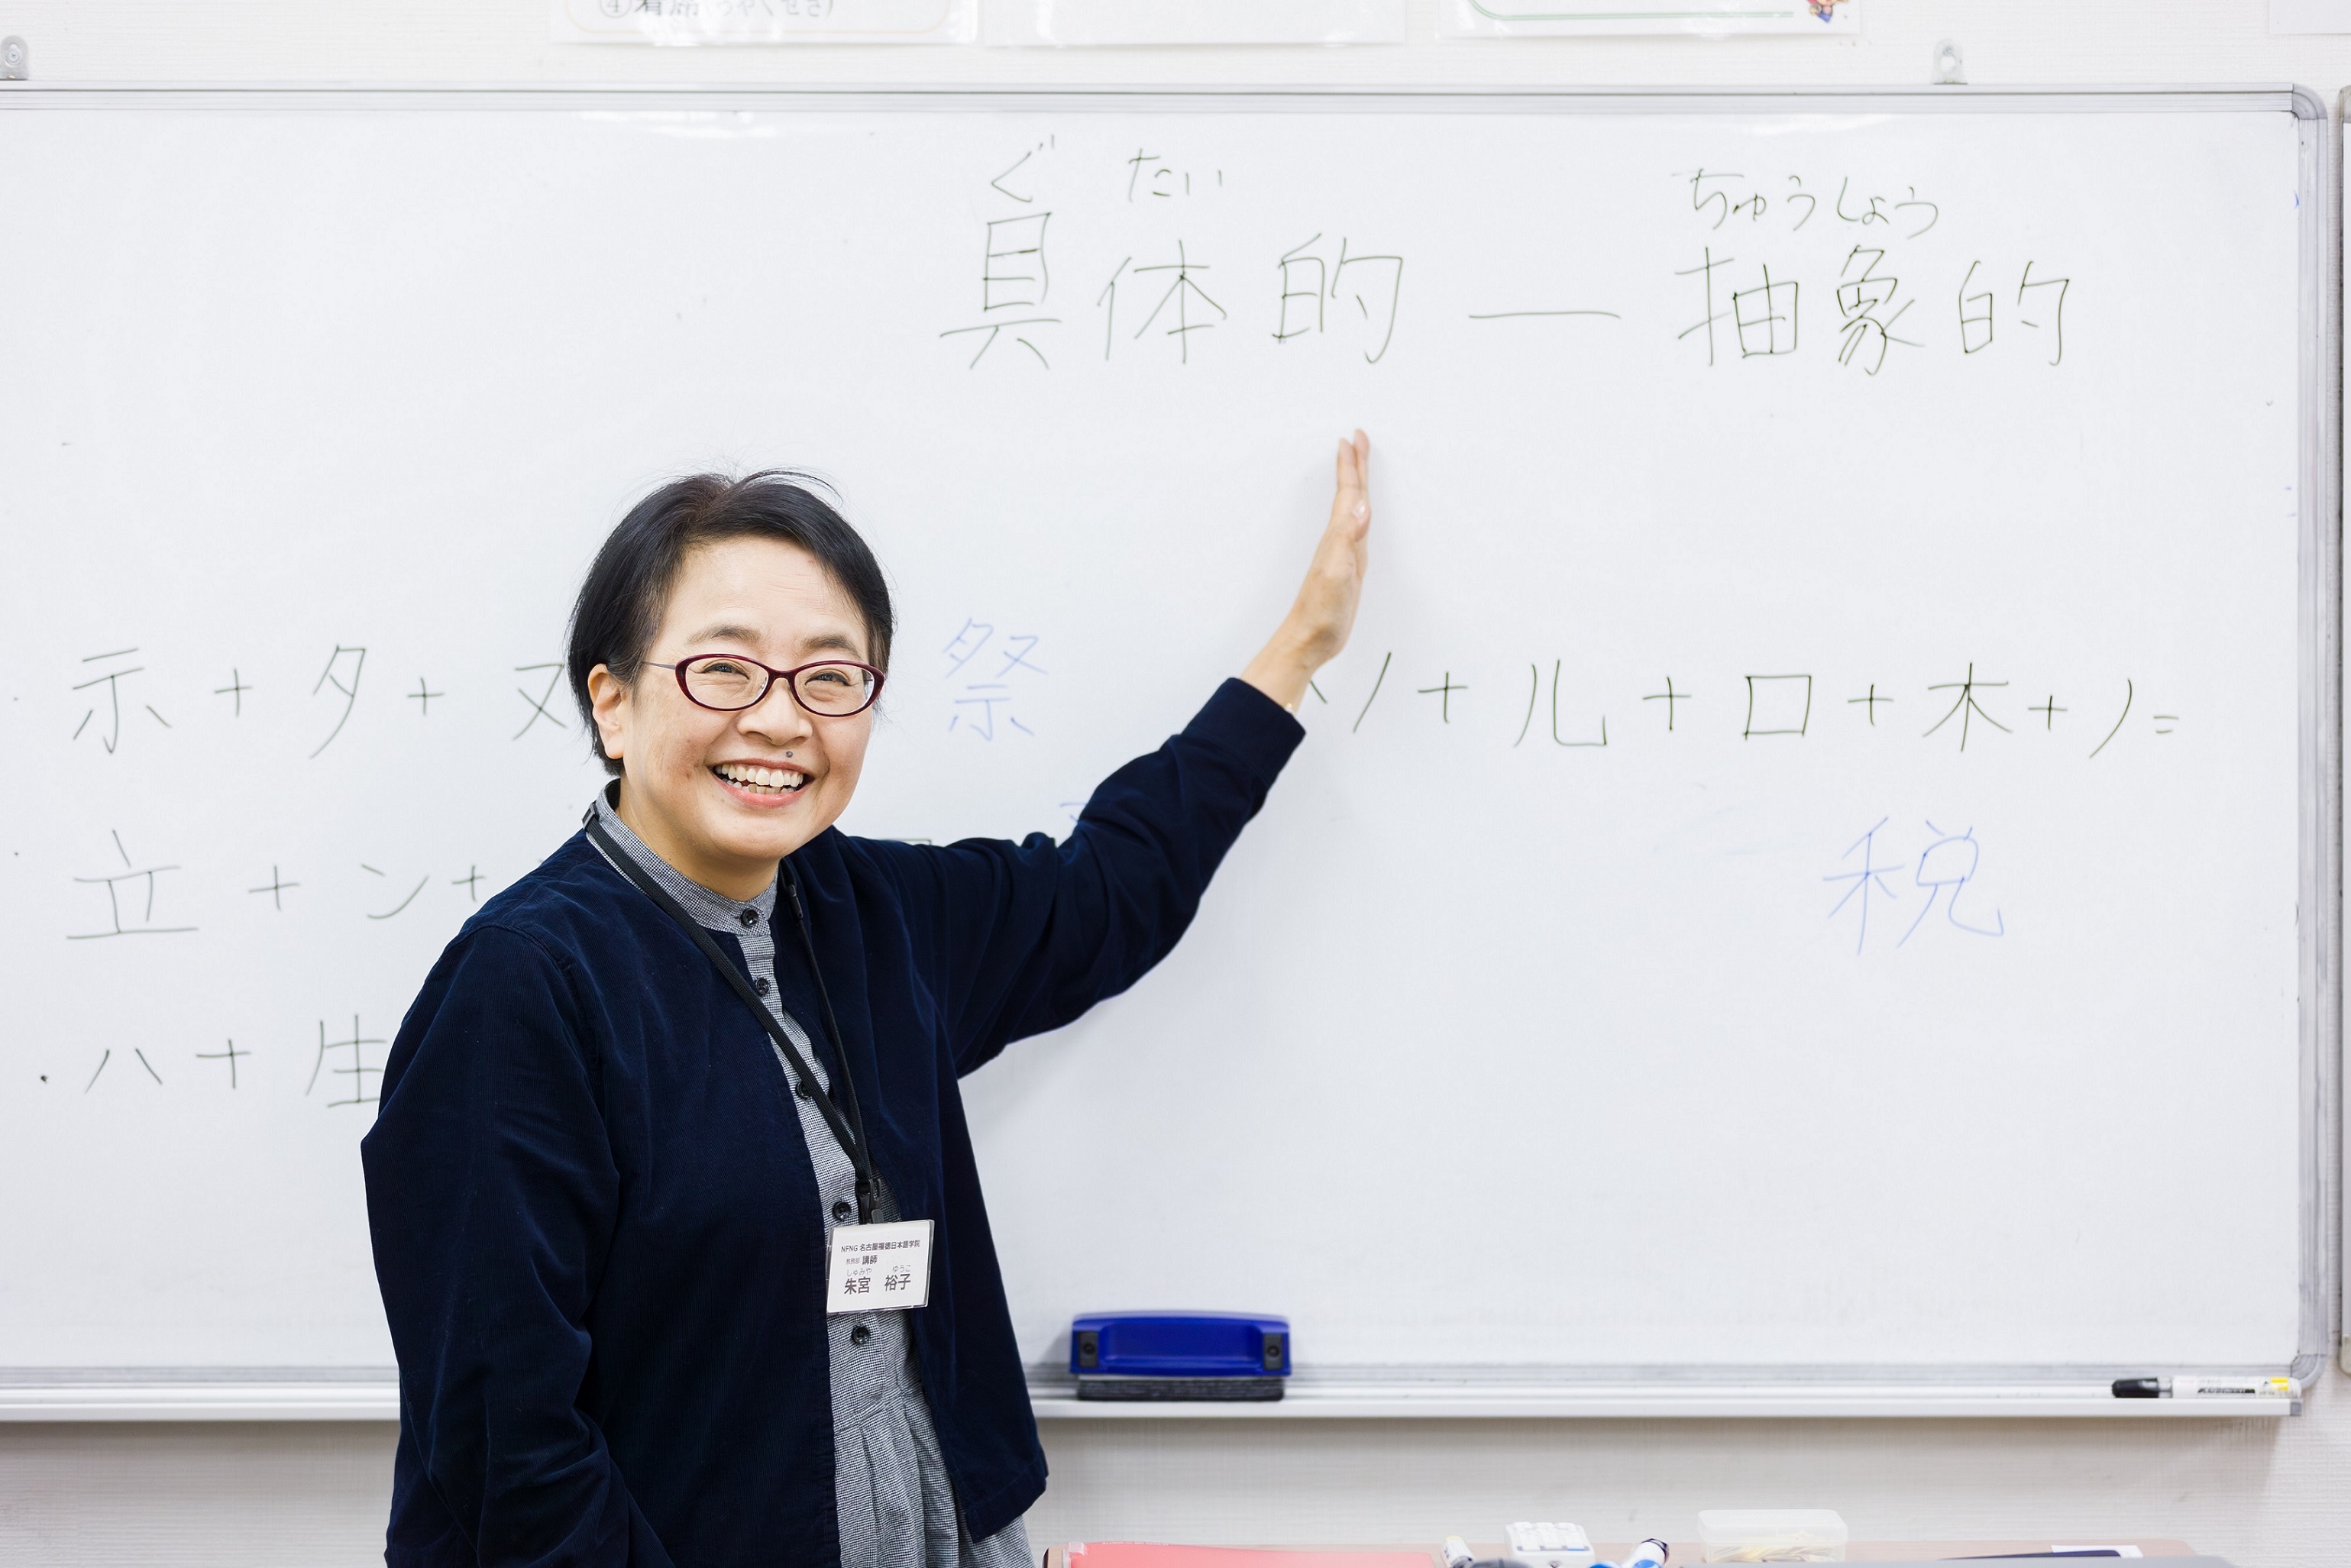 ④着席(ちゃくせき)
ぐ たい ちゅうしょう
具体的 — 抽象的
示 + 夕 + ヌ
祭
ソ + 儿 + 口 + 木 + ノ =
立 + ン +
税
・ ハ + 生
NFNG 名古屋福徳日本語学院
教務部 講師
しゅみや ゆうこ
朱宮 裕子